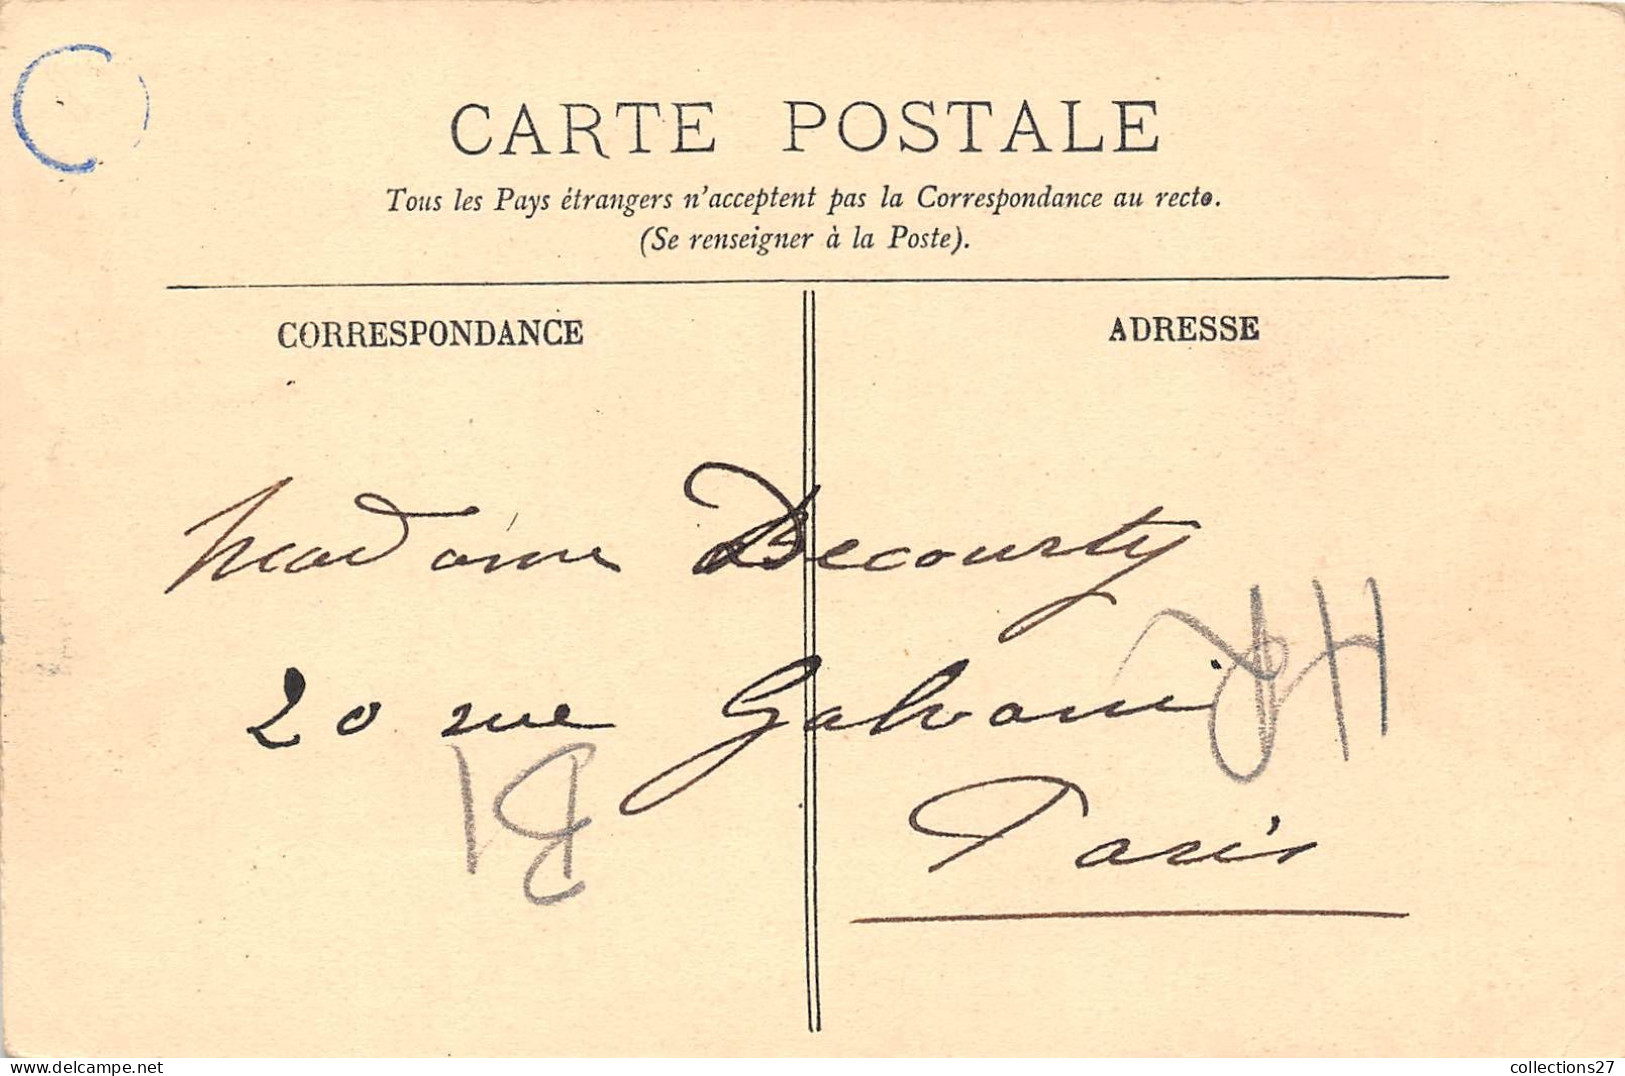 CARTE POSTALE
Tous les Pays étrangers n'acceptent pas la Correspondance au recto.
(Se renseigner à la Poste).
CORRESPONDANCE
ADRESSE
Madame Decourty
20 rue Galvani
Paris
collections27